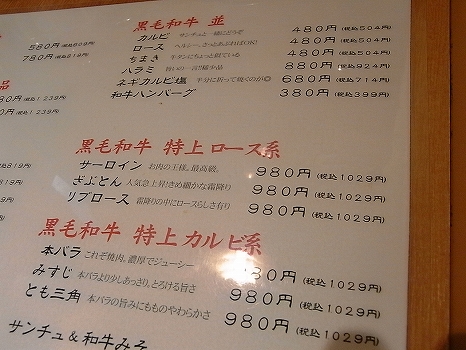 580円(税込609円)
780円(税込819円)
品
80円(税込1239円)
80円(税込1239円)
税込819円)
税込819円)
税込819円)
黒毛和牛 並
カルビ サンチュと一緒にどうぞ 480円(税込504円)
ロース ヘルシー、さっとあぶればOK! 480円(税込504円)
ちまき 牛タンにちょっと似ている 480円(税込504円)
ハラミ 旨いの一言!!稀少品 880円(税込924円)
ネギカルビ塩 半分に折って焼くのが◎ 680円(税込714円)
和牛ハンバーグ 380円(税込399円)
黒毛和牛 特上ロース系
サーロイン お肉の王様。最高級。 980円(税込1029円)
ざぶとん 人気急上昇!きめ細かな霜降り 980円(税込1029円)
リブロース 霜降りの中にロースらしさ有り 980円(税込1029円)
黒毛和牛 特上カルビ系
本バラ これぞ焼肉。濃厚でジューシー 980円(税込1029円)
みすじ 本バラより少しあっさり、とろける旨さ 980円(税込1029円)
とも三角 本バラの旨みにもものやわらかさ 980円(税込1029円)
サンチュ&和牛みそ